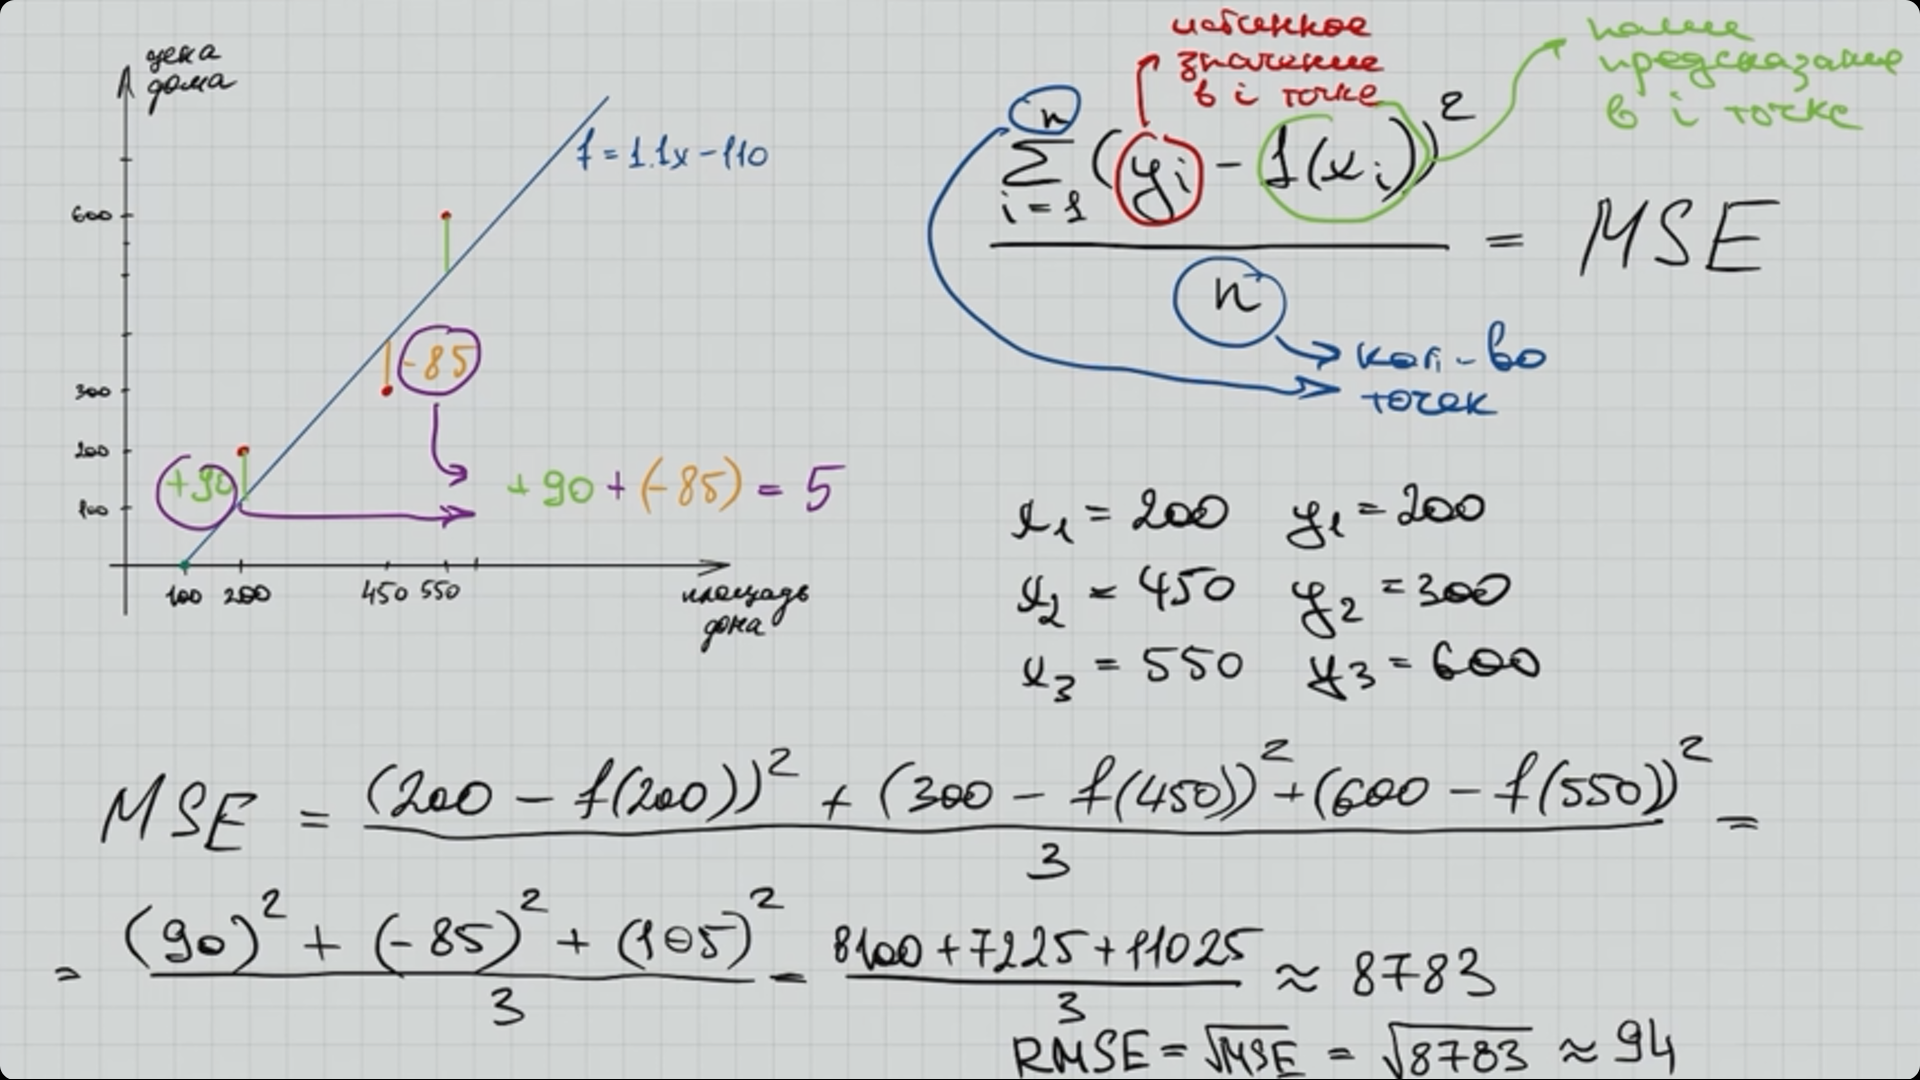 цена
дома
f = 1.1x - 110
600
300
200
100
-85
+90
+90 + (-85) = 5
100 200 450 550
площадь
дома
истинное
значение
в i точке
наше
предсказание
в i точке
n
∑ (yi - f(xi))²
i = 1
n
= MSE
кол-во
точек
x₁ = 200 y₁ = 200
x₂ = 450 y₂ = 300
x₃ = 550 y₃ = 600
MSE = (200 - f(200))² + (300 - f(450))² + (600 - f(550))² =
3
= (90)² + (-85)² + (105)² = 8100 + 7225 + 11025 ≈ 8783
3 3
RMSE = √MSE = √8783 ≈ 94